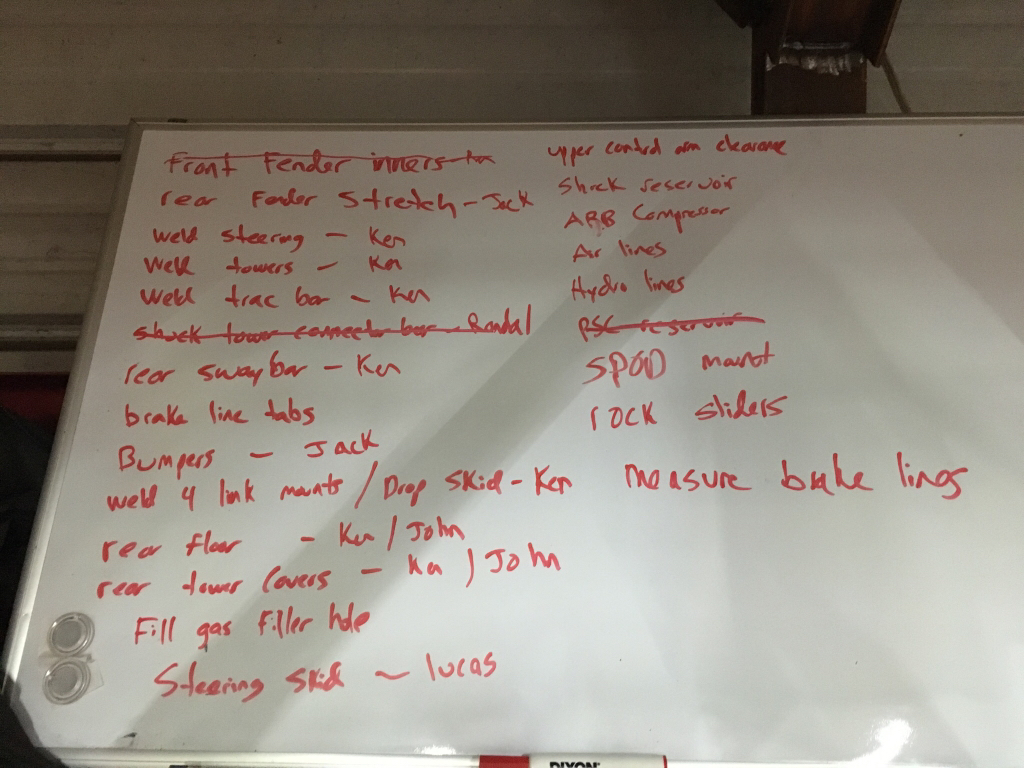 Front Fender inners
rear Fender Stretch - Jack
weld steering - Ken
weld towers - Ken
weld trac bar - Ken
shock tower connector bar - Randal
rear sway bar - Ken
brake line tabs
Bumpers - Jack
weld 4 link mounts / Drop skid - Ken
rear floor - Ken / John
rear tower covers - Ken / John
Fill gas filler hole
Steering skid ~ lucas
upper control arm clearance
Shock reservoir
ARB Compressor
Air lines
Hydro lines
PSC reservoir
SPOD mount
rock sliders
measure brake lines
DIXON